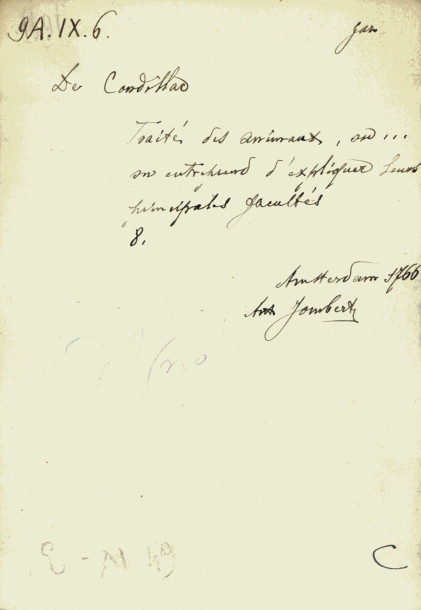 9A.IX.6.
De Condillac
Traité des animaux, où...
on entreprend d'expliquer leurs
principales facultés
8.
Amsterdam 1766
Jombert
C